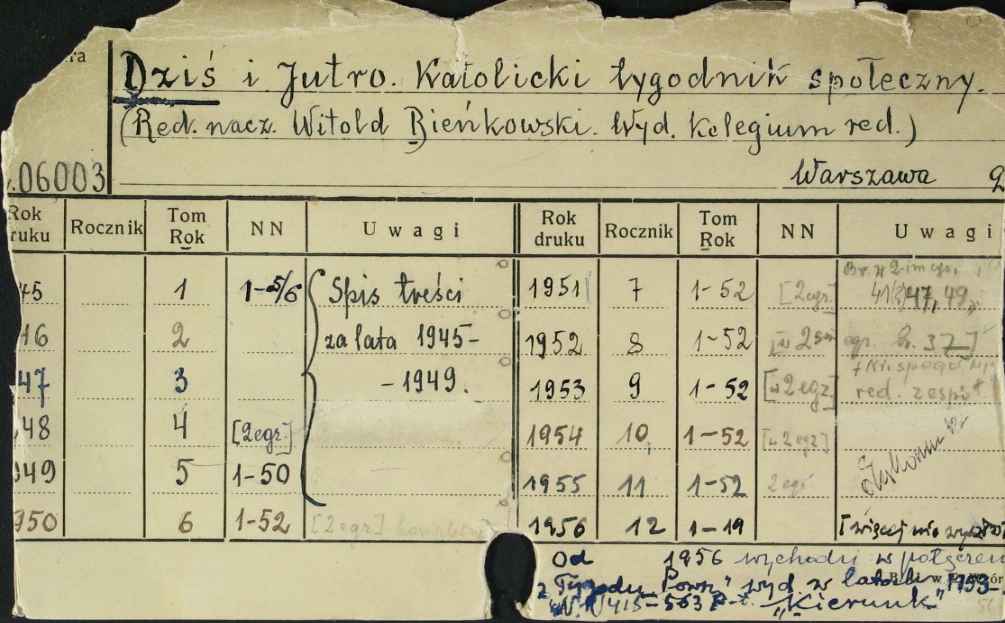 Dziś i Jutro. Katolicki tygodnik społeczny.
(Red. nacz. Witold Bieńkowski. Wyd. Kolegium red.)
.06003 Warszawa
Rok druku Rocznik Tom Rok NN Uwagi Rok druku Rocznik Tom Rok NN Uwagi
45 1 1-5/6 Spis treści 1951 7 1-52 [2egz] 47, 49,
46 2 za lata 1945- 1952 8 1-52 egz. 37]
47 3 -1949. 1953 9 1-52 [w 2egz] red. zespół
48 4 [2egz] 1954 10 1-52 [w 2egz]
949 5 1-50 1955 11 1-52 2egz
950 6 1-52 [2egz] komplet 1956 12 1-19 [więcej nie
Od 1956 wychodzi w połączeniu
z Tygodn. Powsz" wyd. w latach 1953-
NN 415-563 p.t. "Kierunki"